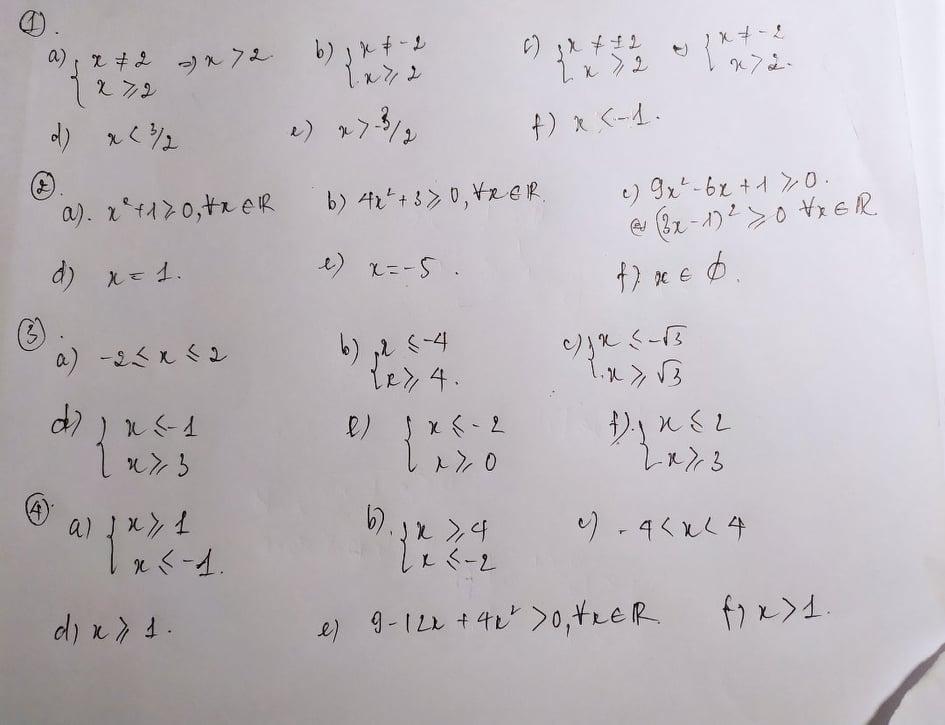 ①.
a) { x ≠ 2 ⇒ x > 2. b) { x ≠ -2 c) { x ≠ ±2 ⇔ { x ≠ -2
x ⩾ 2 x ⩾ 2 x ⩾ 2 x > 2.
d) x < 3/2 e) x > -3/2 f) x < -1.
②.
a). x²+1 ⩾ 0, ∀x ∈ ℝ b) 4x² + 3 ⩾ 0, ∀x ∈ ℝ. c) 9x² - 6x + 1 ⩾ 0.
⇔ (3x - 1)² ⩾ 0 ∀x ∈ ℝ
d) x = 1. e) x = -5. f) x ∈ ∅.
③.
a) -2 ⩽ x ⩽ 2 b) { x ⩽ -4 c) { x ⩽ -√3
x ⩾ 4. x ⩾ √3
d) { x ⩽ -1 e) { x ⩽ -2 f). { x ⩽ 2
x ⩾ 3 x ⩾ 0 x ⩾ 3
④.
a) { x ⩾ 1 b). { x ⩾ 4 c) -4 < x < 4
x ⩽ -1. x ⩽ -2
d) x ⩾ 1. e) 9 - 12x + 4x² > 0, ∀x ∈ ℝ. f) x > 1.